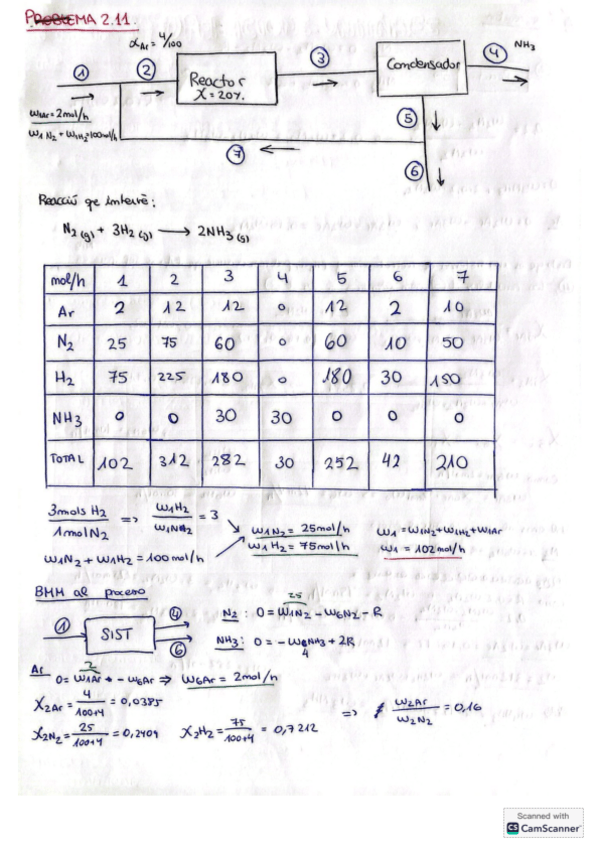 PROBLEMA 2.11.
x Ar = 4/100
1
2
Reactor
X = 20%.
3
Condensador
4
NH3
w1Ar = 2mol/h
w1N2 + w1H2 = 100mol/h
5
7
6
Reacció que intervé:
N2(g) + 3H2(g) → 2NH3(g)
mol/h 1 2 3 4 5 6 7
Ar 2 12 12 0 12 2 10
N2 25 75 60 0 60 10 50
H2 75 225 180 0 180 30 150
NH3 0 0 30 30 0 0 0
TOTAL 102 312 282 30 252 42 210
3mols H2 / 1molN2 => w1H2 / w1N2 = 3
w1N2 + w1H2 = 100mol/h
w1N2 = 25mol/h
w1H2 = 75mol/h
w1 = w1N2 + w1H2 + w1Ar
w1 = 102mol/h
BMM al proceso
1 SIST 4 6
25
N2: 0 = w1N2 - w6N2 - R
NH3: 0 = - w4NH3 + 2R
Ar
2
0 = w1Ar - w6Ar => w6Ar = 2mol/h
x2Ar = 4 / 100+4 = 0,0385
x2N2 = 25 / 100+4 = 0,2404 x2H2 = 75 / 100+4 = 0,7212
=> w2Ar / w2N2 = 0,16
Scanned with
CS CamScanner